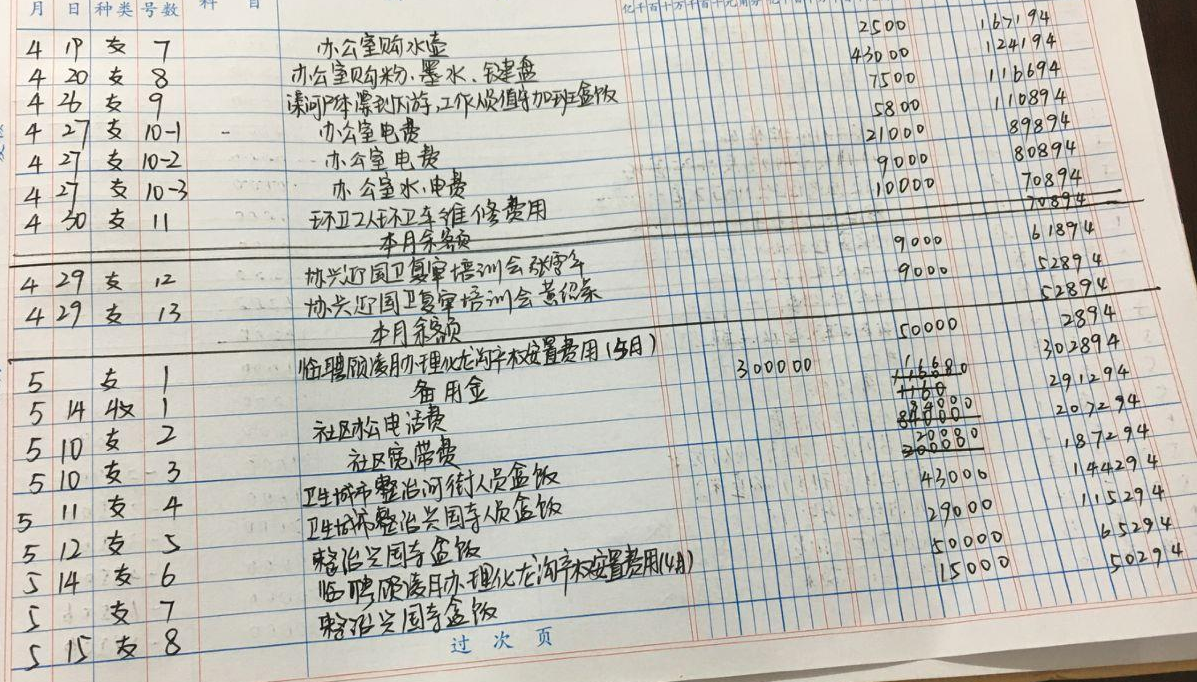 月 日 种类 号数 科 目
亿千百十万千百十元角分
4 19 支 7 办公室购水壶 2500 167194
4 20 支 8 办公室购粉、墨水、键盘 43000 124194
4 26 支 9 工作人员值守加班盒饭 7500 116694
4 27 支 10-1 办公室电费 5800 110894
4 27 支 10-2 办公室电费 21000 89894
4 27 支 10-3 办公室水、电费 9000 80894
4 30 支 11 环卫工人环卫车维修费用 10000 70894
本月余额 70894
4 29 支 12 协兴迎国卫复审培训会 9000 61894
4 29 支 13 协兴迎国卫复审培训会 9000 52894
本月余额 52894
5 支 1 临聘顾凌月办理化龙沟产权安置费用(5月) 50000 2894
5 14 收 1 备用金 300000 302894
5 10 支 2 社区办公电话费 291294
5 10 支 3 社区宽带费 84000 207294
5 11 支 4 卫生城市整治河街人员盒饭 20080 187294
5 12 支 5 卫生城市整治兴国寺人员盒饭 43000 144294
5 14 支 6 整治兴国寺盒饭 29000 115294
5 支 7 临聘顾凌月办理化龙沟产权安置费用(4月) 50000 65294
5 15 支 8 整治兴国寺盒饭 15000 50294
过 次 页